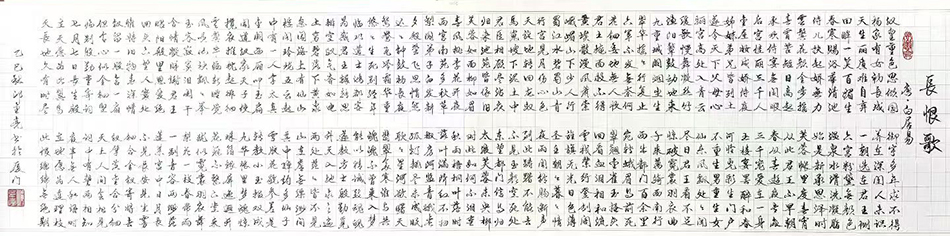 長恨歌
唐白居易
漢皇重色思傾國 御宇多年求不得
楊家有女初長成 養在深閨人未識
天生麗質難自棄 一朝選在君王側
回眸一笑百媚生 六宮粉黛無顏色
春寒賜浴華清池 溫泉水滑洗凝脂
侍兒扶起嬌無力 始是新承恩澤時
雲鬢花顏金步搖 芙蓉帳暖度春宵
春宵苦短日高起 從此君王不早朝
承歡侍宴無閑暇 春從春遊夜專夜
後宮佳麗三千人 三千寵愛在一身
金屋妝成嬌侍夜 玉樓宴罷醉和春
姊妹弟兄皆列土 可憐光彩生門戶
遂令天下父母心 不重生男重生女
驪宮高處入青雲 仙樂風飄處處聞
緩歌慢舞凝絲竹 盡日君王看不足
漁陽鼙鼓動地來 驚破霓裳羽衣曲
九重城闕煙塵生 千乘萬騎西南行
翠華搖搖行復止 西出都門百餘里
六軍不發無奈何 宛轉蛾眉馬前死
花鈿委地無人收 翠翹金雀玉搔頭
君王掩面救不得 回看血淚相和流
黃埃散漫風蕭索 雲棧縈紆登劍閣
峨嵋山下少人行 旌旗無光日色薄
蜀江水碧蜀山青 聖主朝朝暮暮情
行宮見月傷心色 夜雨聞鈴腸斷聲
天旋地轉迴龍馭 到此躊躇不能去
馬嵬坡下泥土中 不見玉顏空死處
君臣相顧盡沾衣 東望都門信馬歸
歸來池苑皆依舊 太液芙蓉未央柳
芙蓉如面柳如眉 對此如何不淚垂
春風桃李花開日 秋雨梧桐葉落時
西宮南內多秋草 落葉滿階紅不掃
梨園弟子白髮新 椒房阿監青娥老
夕殿螢飛思悄然 孤燈挑盡未成眠
遲遲鐘鼓初長夜 耿耿星河欲曙天
鴛鴦瓦冷霜華重 翡翠衾寒誰與共
悠悠生死別經年 魂魄不曾來入夢
臨邛道士鴻都客 能以精誠致魂魄
為感君王輾轉思 遂教方士殷勤覓
排空馭氣奔如電 升天入地求之遍
上窮碧落下黃泉 兩處茫茫皆不見
忽聞海上有仙山 山在虛無縹緲間
樓閣玲瓏五雲起 其中綽約多仙子
中有一人字太真 雪膚花貌參差是
金闕西廂叩玉扃 轉教小玉報雙成
聞道漢家天子使 九華帳裏夢魂驚
攬衣推枕起徘徊 珠箔銀屏迤邐開
雲鬢半偏新睡覺 花冠不整下堂來
風吹仙袂飄飄舉 猶似霓裳羽衣舞
玉容寂寞淚闌干 梨花一枝春帶雨
含情凝睇謝君王 一別音容兩渺茫
昭陽殿裏恩愛絕 蓬萊宮中日月長
回頭下望人寰處 不見長安見塵霧
唯將舊物表深情 鈿合金釵寄將去
釵留一股合一扇 釵擘黃金合分鈿
但教心似金鈿堅 天上人間會相見
臨別殷勤重寄詞 詞中有誓兩心知
七月七日長生殿 夜半無人私語時
在天願作比翼鳥 在地願為連理枝
天長地久有時盡 此恨綿綿無絕期
乙巳秋 於廈門